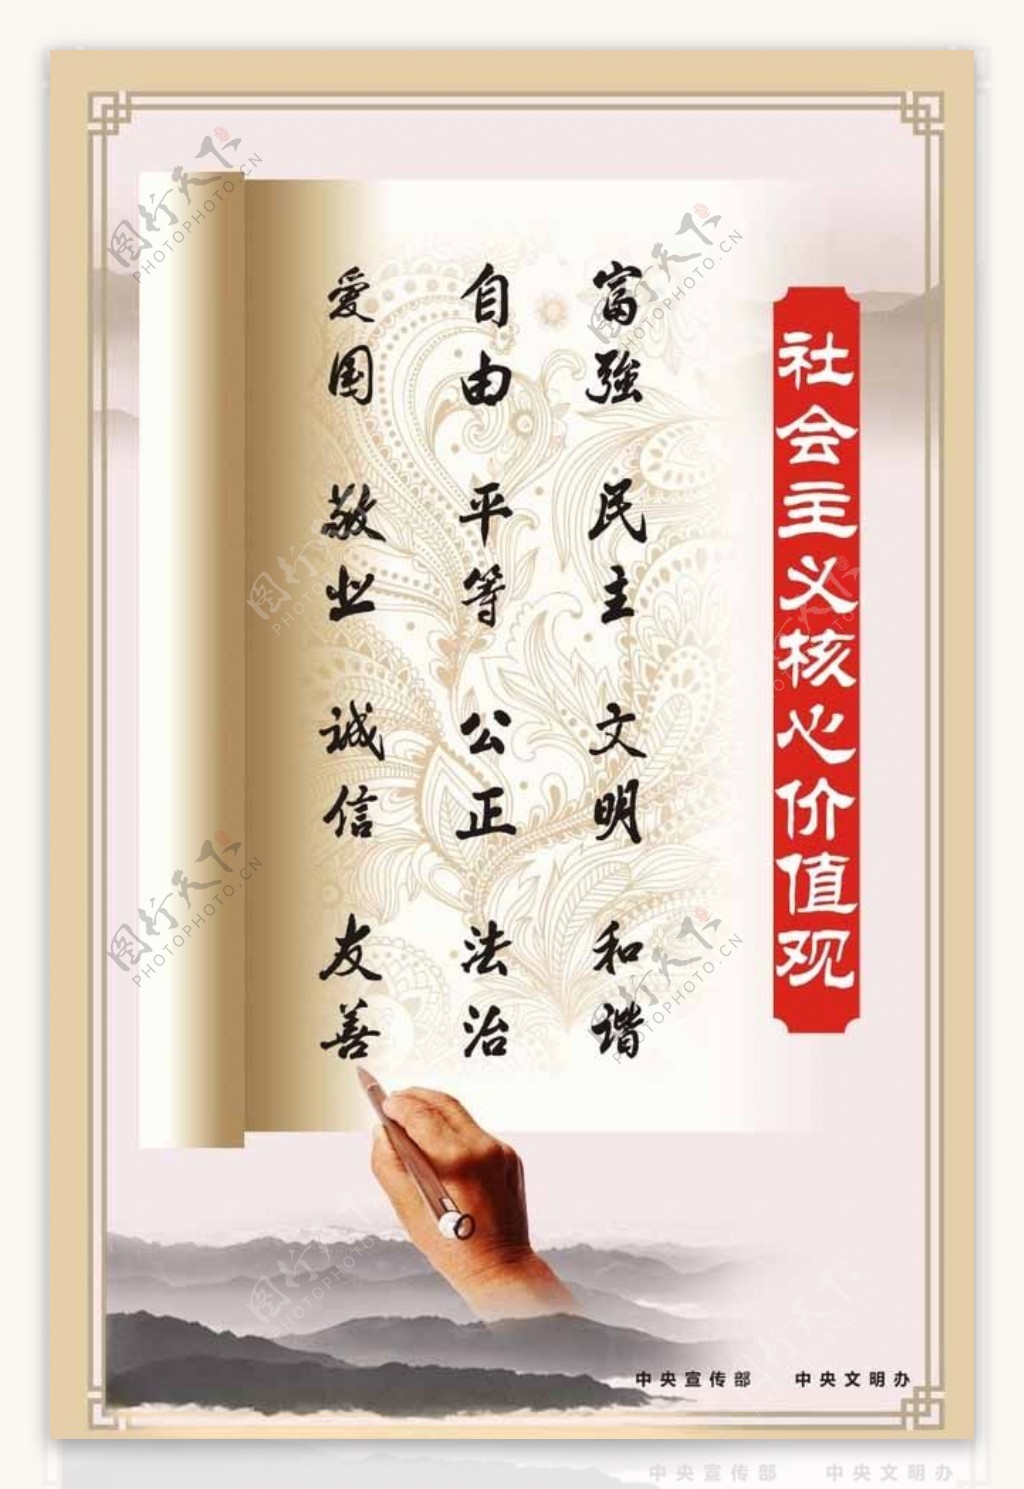 社会主义核心价值观
富強 民主 文明 和谐
自由 平等 公正 法治
愛国 敬业 诚信 友善
中央宣传部 中央文明办
图行天下
PHOTOPHOTO.CN